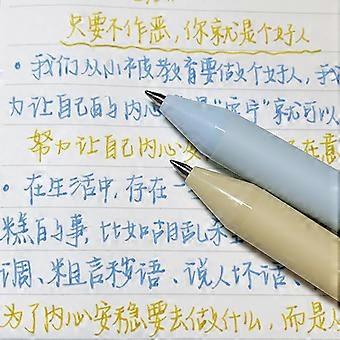 只要不作恶,你就是个好人
• 我们从小被教育要做个好人,我
为让自己的与内心 "安宁"就可以
努力让自己内心安 在意
• 在生活中,存在一
糕的事,比如胡乱
调、粗言秽语、说人坏话、
为了内心安稳要去做什么,而是